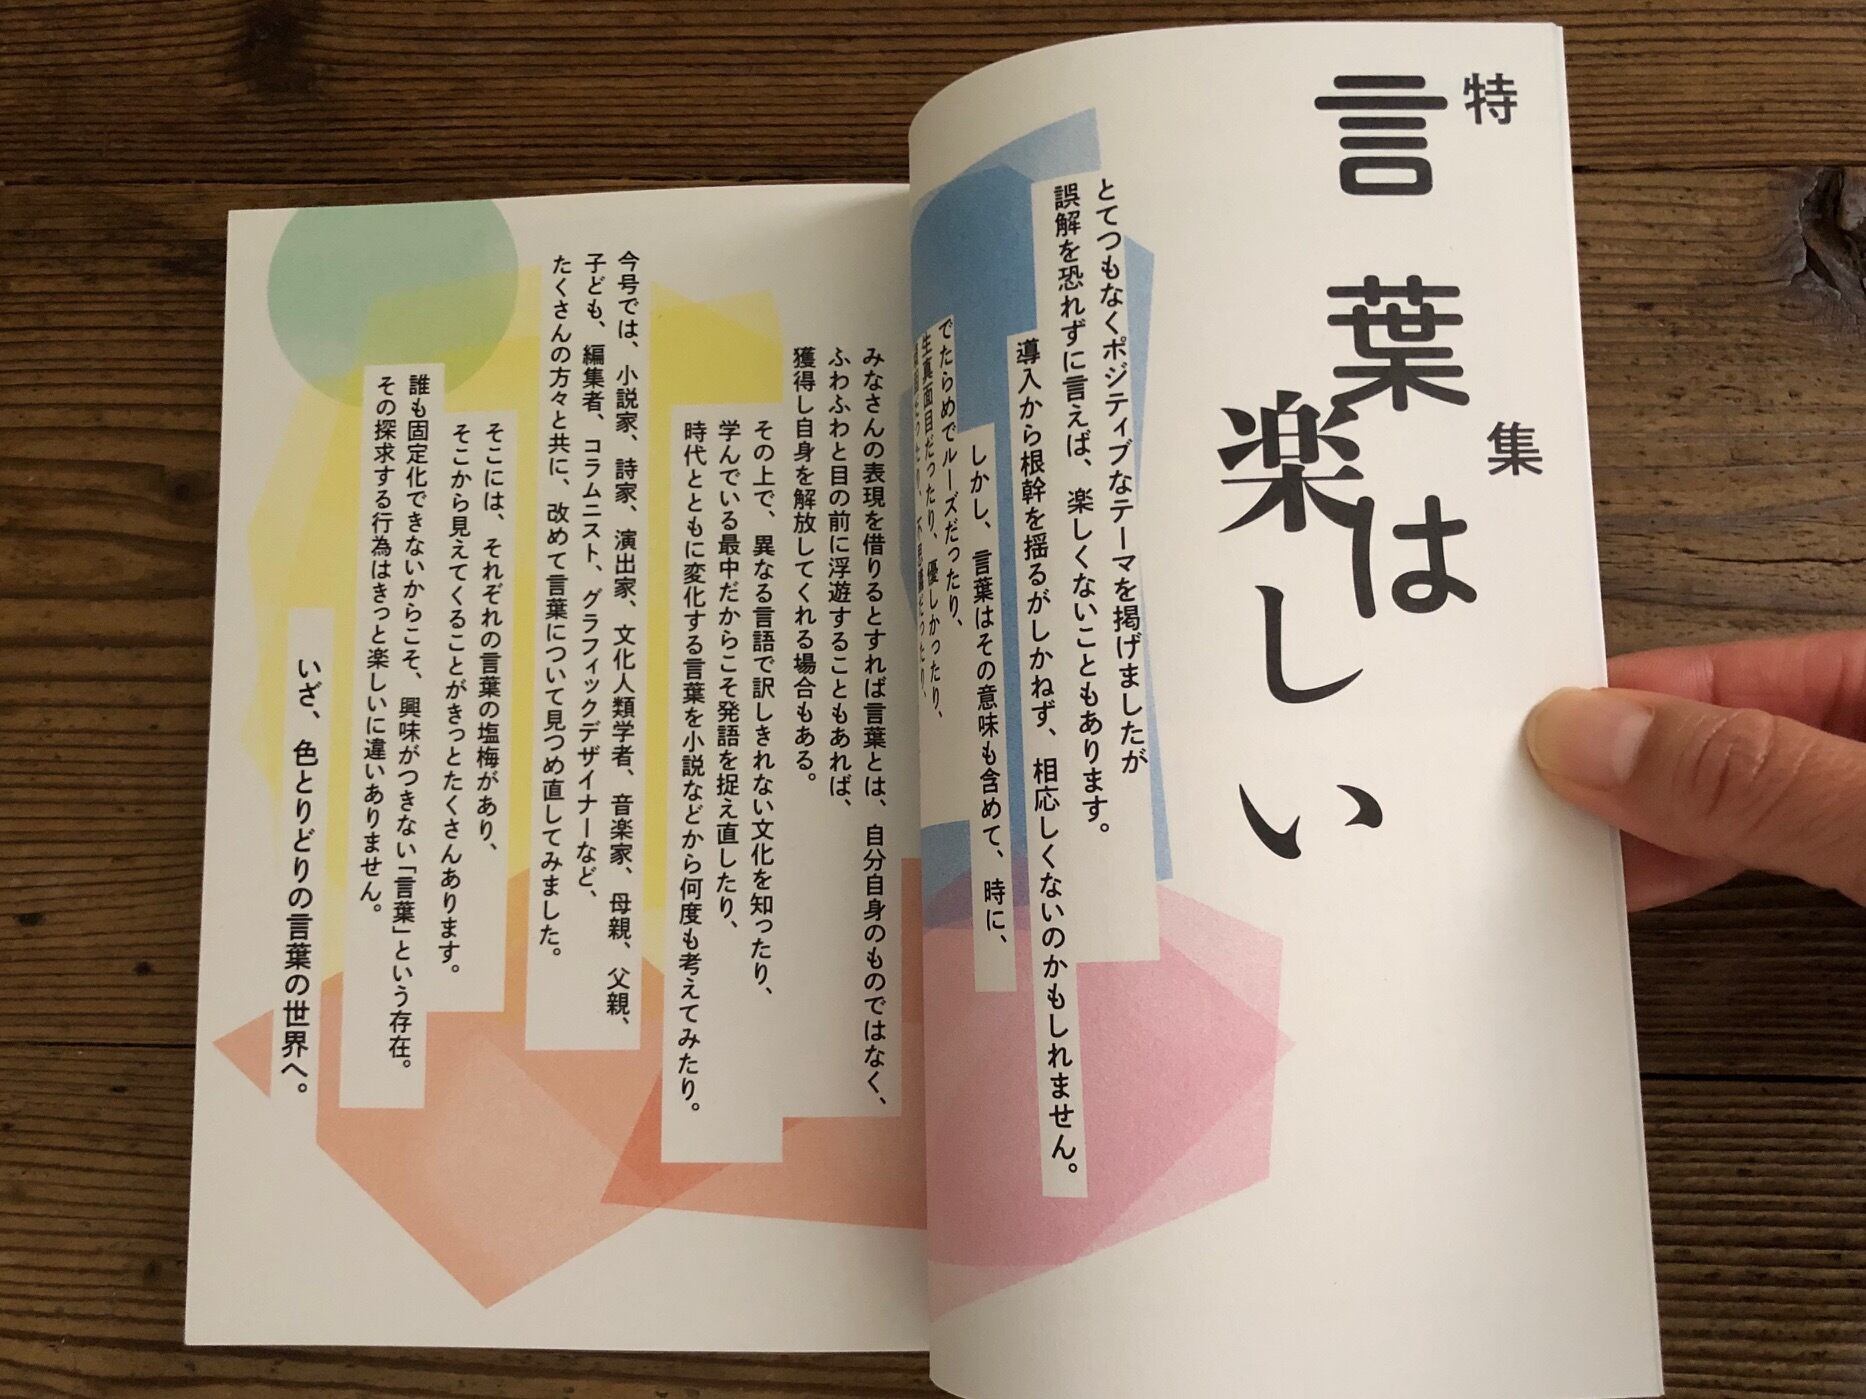 特集
言葉は
楽しい
とてつもなくポジティブなテーマを掲げましたが
誤解を恐れずに言えば、楽しくないこともあります。
導入から根幹を揺るがしかねず、相応しくないのかもしれません。
しかし、言葉はその意味も含めて、時に、
でたらめでルーズだったり、
生真面目だったり、優しかったり、
みなさんの表現を借りるとすれば言葉とは、自分自身のものではなく、
ふわふわと目の前に浮遊することもあれば、
獲得し自身を解放してくれる場合もある。
その上で、異なる言語で訳しきれない文化を知ったり、
学んでいる最中だからこそ発語を捉え直したり、
時代とともに変化する言葉を小説などから何度も考えてみたり。
今号では、小説家、詩家、演出家、文化人類学者、音楽家、母親、父親、
子ども、編集者、コラムニスト、グラフィックデザイナーなど、
たくさんの方々と共に、改めて言葉について見つめ直してみました。
そこには、それぞれの言葉の塩梅があり、
そこから見えてくることがきっとたくさんあります。
誰も固定化できないからこそ、興味がつきない「言葉」という存在。
その探求する行為はきっと楽しいに違いありません。
いざ、色とりどりの言葉の世界へ。